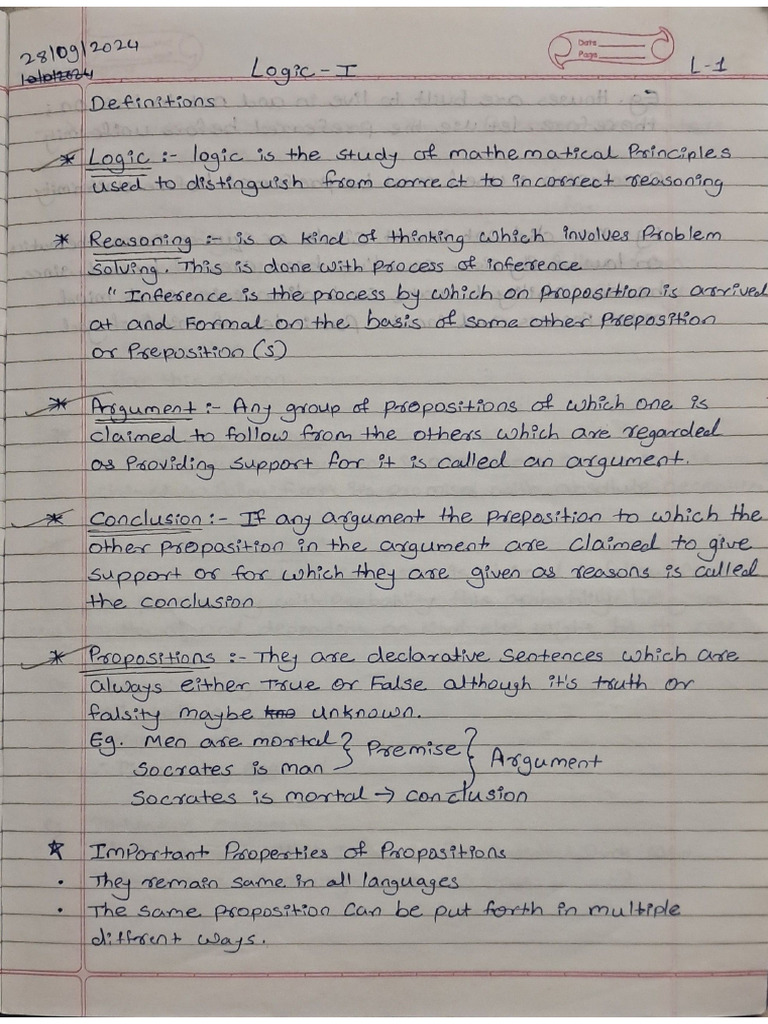 28/09/2024
Logic - I
Date
Page
L-1
Definitions
* Logic :- logic is the study of mathematical Principles
used to distinguish from correct to incorrect reasoning
* Reasoning :- is a kind of thinking which involves Problem
solving. This is done with process of inference
" Inference is the process by which on proposition is arrived
at and Formal on the basis of some other Preposition
or Preposition (s)
* Argument :- Any group of propositions of which one is
claimed to follow from the others which are regarded
as Providing support for it is called an argument.
* Conclusion :- If any argument the preposition to which the
other proposition in the argument are claimed to give
support or for which they are given as reasons is called
the conclusion
* Propositions :- They are declarative sentences which are
always either True or False although it's truth or
falsity maybe unknown.
Eg. Men are mortal } Premise } Argument
Socrates is man
Socrates is mortal → conclusion
☆ Important Properties of Propositions
• They remain same in all languages
• The same proposition can be put forth in multiple
different ways.